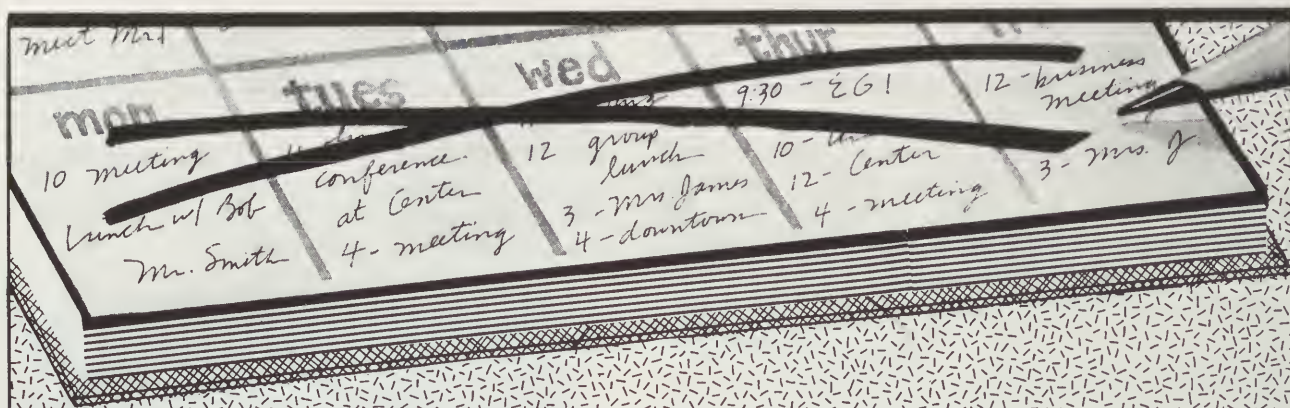 meet Mrs
mon
10 meeting
Lunch w/ Bob
Mr. Smith
tues
conference
at Center
4 - meeting
wed
12 group
lunch
3 - Mrs. James
4 - downtown
thur
9:30 - EG!
10 -
12 - Center
4 - meeting
12 - business
meeting
3 - Mrs. J.